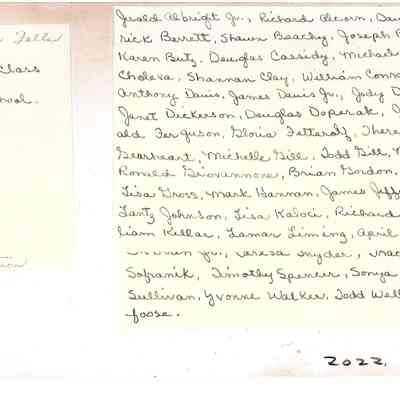 Falls
Class
ool.
tion
Jerald Albright Jr., Richard Alcorn, Dav
rick Barrett, Shawn Beachy, Joseph B
Karen Butz, Douglas Cassidy, Michael
Choleva, Shannan Clay, William Conn
Anthony Davis, James Davis Jr., Jody D
Janet Dickerson, Douglas Doperak,
ald Ferguson, Gloria Fetterolf, There
Gearheart, Michelle Gill, Todd Gill, M
Ronald Giovannone, Brian Gordon,
Lisa Gross, Mark Hannan, James Jeff
Lantz Johnson, Lisa Kaloci, Richard
liam Kellar, Lamar Liming, April
Jr., Teresa Snyder,
Sofranik, Timothy Spencer, Sonya
Sullivan, Yvonne Walker, Todd Well
foose.
2022.